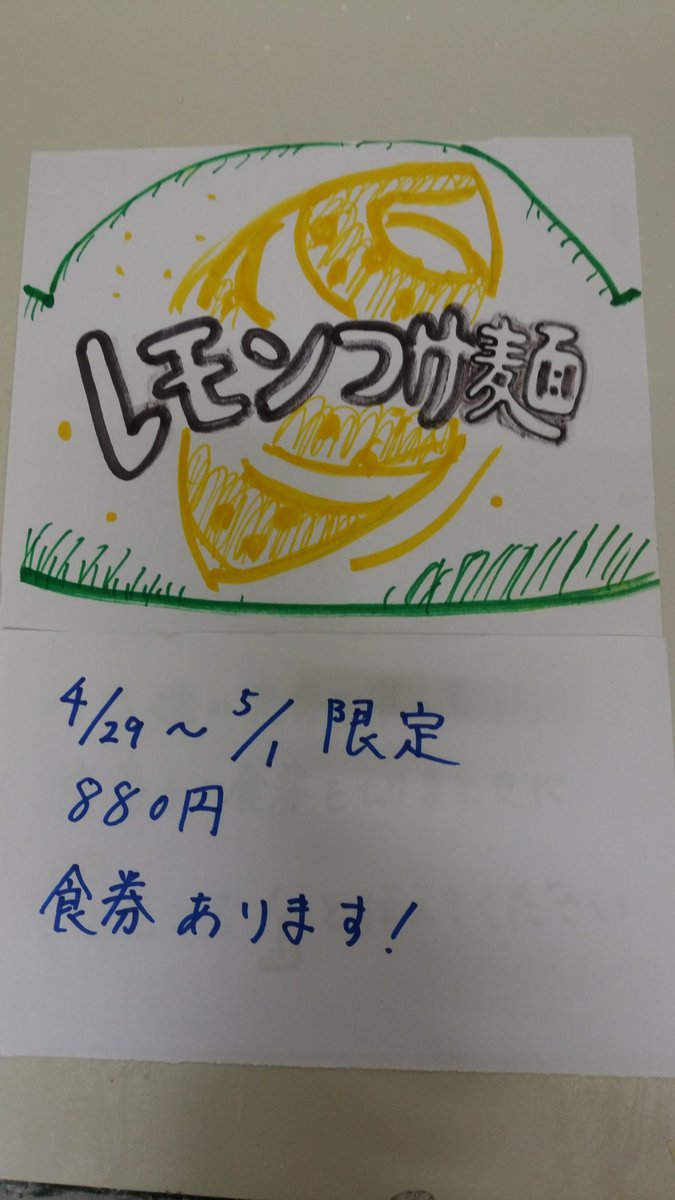 レモンつけ麺
4/29〜5/1 限定
880円
食券 あります!